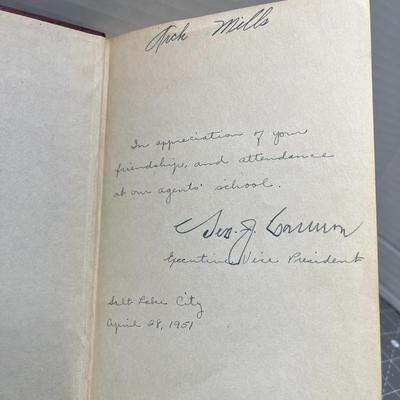 Rick Mills
In appreciation of your
friendship, and attendance
at our agents' school.
Geo. J. Cannon
Executive Vice President
Salt Lake City
April 28, 1951